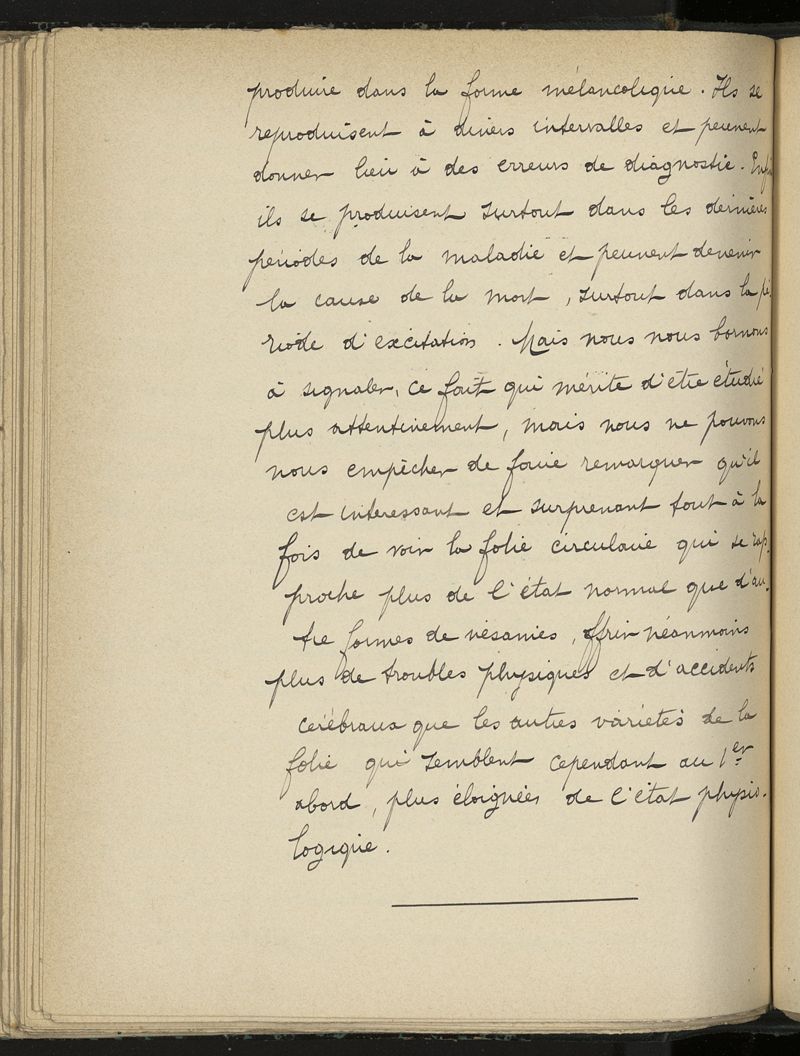 produire dans la forme mélancolique. Ils se
reproduisent à divers intervalles et peuvent
donner lieu à des erreurs de diagnostic. Enfin
ils se produisent surtout dans les dernières
périodes de la maladie et peuvent devenir
la cause de la mort, surtout dans la pé-
riode d'excitation. Mais nous nous bornons
à signaler, ce fait qui mérite d'être étudié
plus attentivement, mais nous ne pouvons
nous empêcher de faire remarquer qu'il
est intéressant et surprenant tout à la
fois de voir la folie circulaire qui se rap-
proche plus de l'état normal que d'au-
tre formes de vésanies, offrir néanmoins
plus de troubles physiques et d'accidents
cérébraux que les autres variétés de la
folie qui semblent cependant au 1er
abord, plus éloignées de l'état physio-
logique.